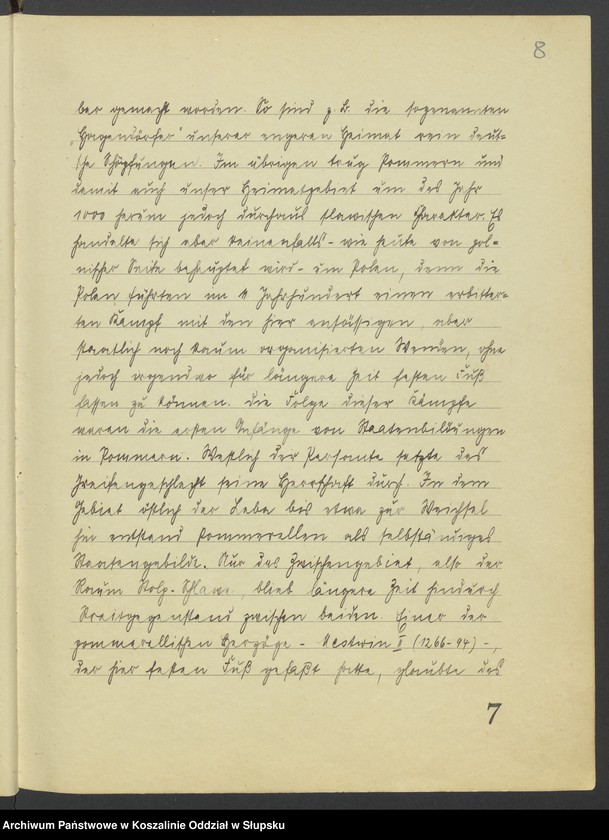 8
ber gemacht worden. So sind z. B. die sogenannten
"Hagendörfer" unserer engeren Heimat rein deut-
sche Schöpfungen. Im übrigen trug Pommern und
damit auch unser Heimatgebiet um das Jahr
1000 herum jedoch durchaus slawischen Charakter. Es
handelte sich aber keinenfalls - wie heute von pol-
nischer Seite behauptet wird - um Polen, denn die
Polen führten im 11 Jahrhundert einen erbitter-
ten Kampf mit den hier ansässigen, aber
staatlich noch kaum organisierten Wenden, ohne
jedoch irgendwo für längere Zeit festen Fuß
fassen zu können. Die Folge dieser Kämpfe
waren die ersten Anfänge von Staatenbildungen
in Pommern. Westlich der Persante setzte das
Greifengeschlecht seine Herrschaft durch. In dem
Gebiet östlich der Leba bis etwa zur Weichsel
hin entstand Pommerellen als selbständiges
Staatengebilde. Nur das Zwischengebiet, also der
Raum Stolp-Schlawe, blieb längere Zeit hindurch
Streitgegenstand zwischen beiden. Einer der
pommerellischen Herzöge - Mestwin II (1266-94) -,
der hier festen Fuß gefaßt hatte, glaubte das
7
Archiwum Państwowe w Koszalinie Oddział w Słupsku